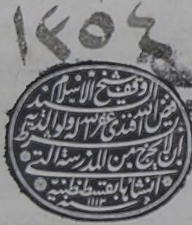 ١٢٥٤
وقف شيخ الاسلام السيد
فيض الله افندى غفر الله له ولوالديه بشرط
ان لا يخرج من المدرسة التى
انشاها بقسطنطينية
سنه ١١١٣